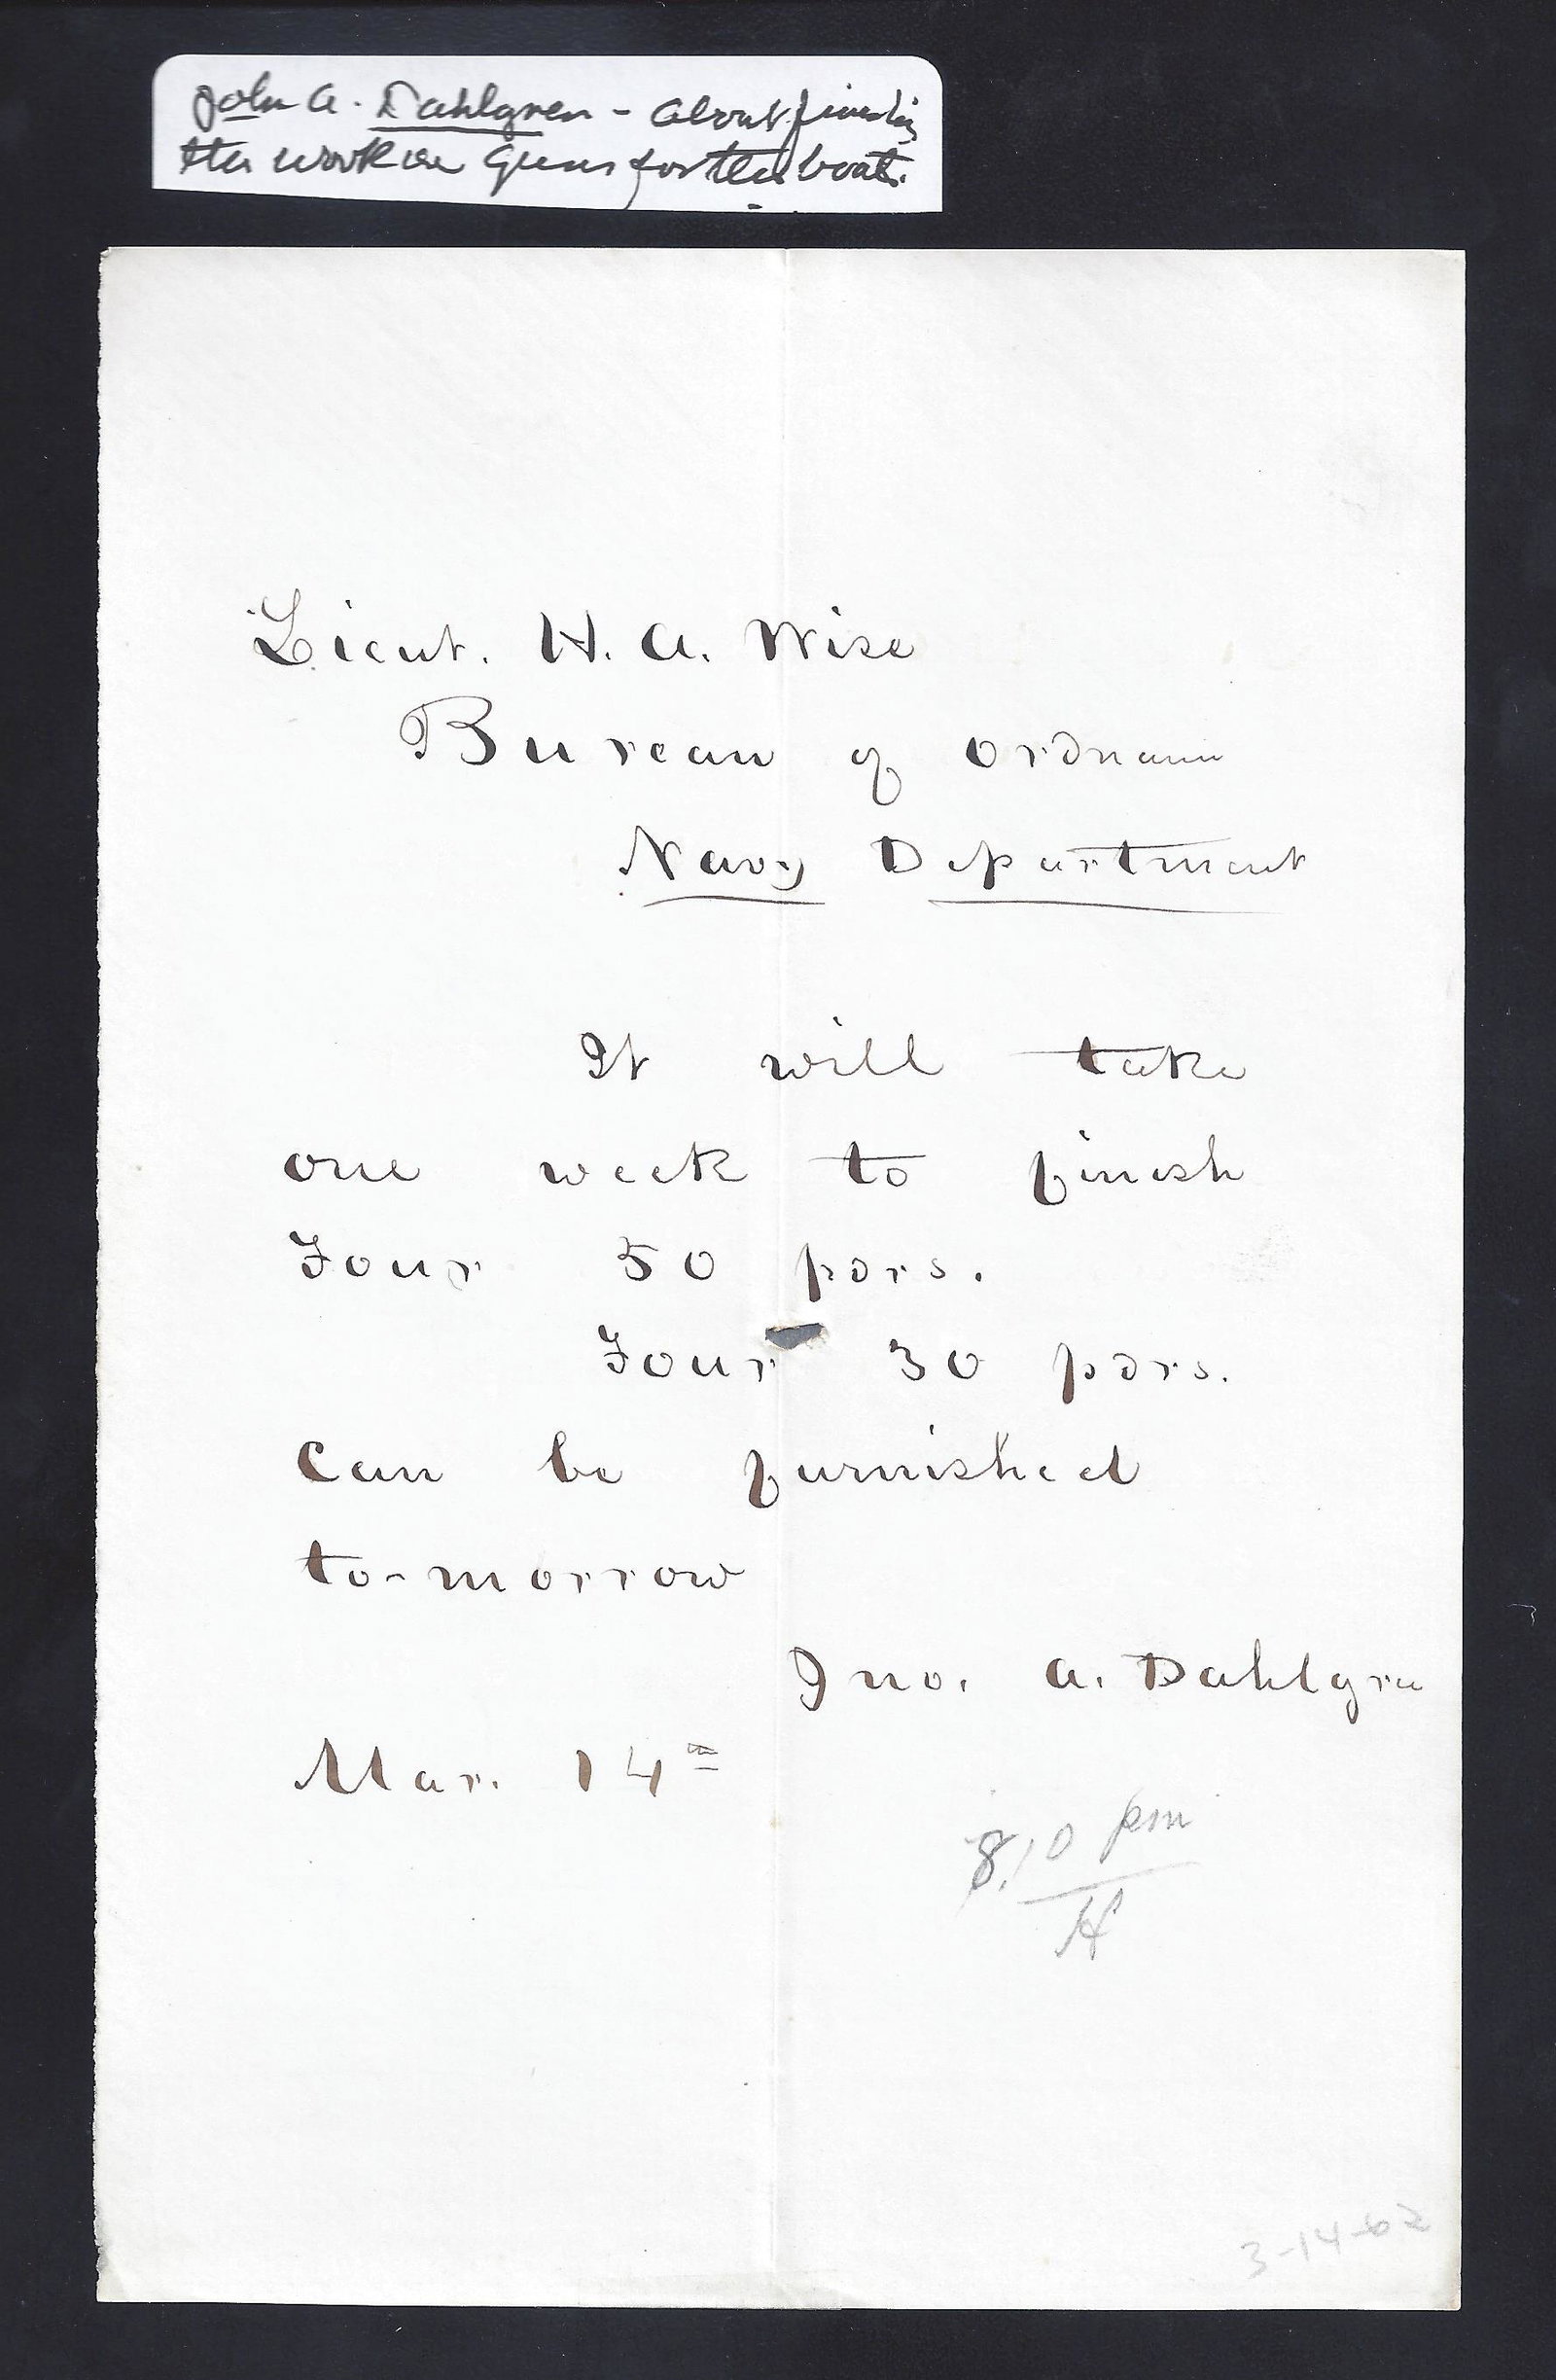 John A. Dahlgren - about finishing
the work on guns for the boats.
Lieut. H. A. Wise
Bureau of Ordnance
Navy Department
It will take
one week to finish
Four 50 pdrs.
Four 30 pdrs.
can be furnished
to-morrow
Jno. A. Dahlgren
Mar. 14th
8.10 pm
H
3-14-62